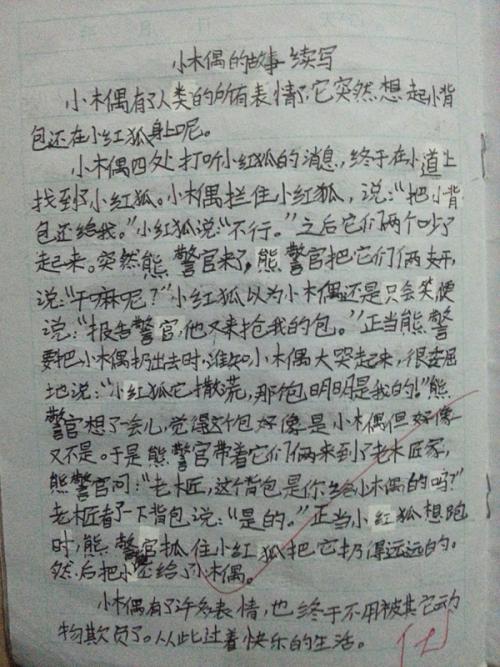 小木偶的故事续写
小木偶有了人类的所有表情了它突然想起小背
包还在小红狐身上呢。
小木偶四处打听小红狐的消息,终于在小道上
找到了小红狐。小木偶拦住小红狐,说:“把小背
包还给我。”小红狐说:“不行。”之后它们两个吵了
起来。突然熊警官来了,熊警官把它们俩支开,
说:“干嘛呢?”小红狐以为小木偶还是只会笑便
说:“报告警官,他又来抢我的包。”正当熊警
要把小木偶扔出去时,谁知小木偶大哭起来,很委屈
地说:“小红狐它撒谎,那包明明是我的!”熊
警官想了一会儿,觉得这个包好像是小木偶但好像
又不是。于是熊警官带着它们俩来到了老木匠家,
熊警官问:“老木匠,这个背包是你给小木偶的吗?”
老木匠看了一下背包说:“是的。”正当小红狐想跑
时,熊警官抓住小红狐把它扔得远远的。
然后把小包给了小木偶。
小木偶有了许多表情,也终于不用被其它动
物欺负了。从此过着快乐的生活。